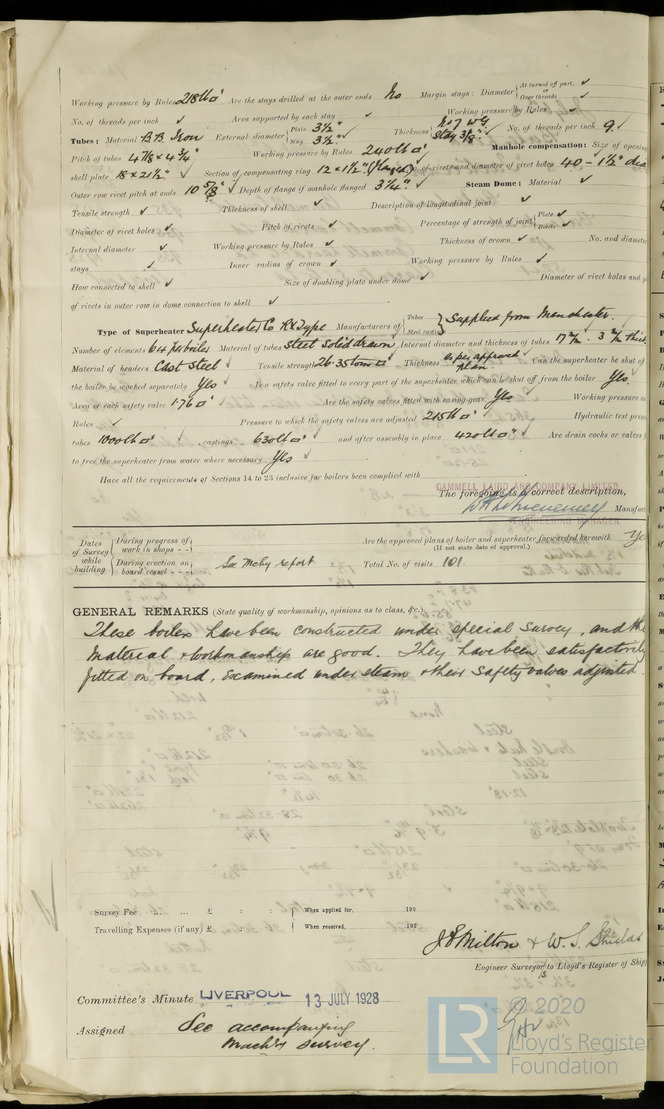 Working pressure by Rules 218 lb □" Are the stays drilled at the outer ends No Margin stays: Diameter { At turned off part, ✓ or Over threads ✓
No. of threads per inch ✓ Area supported by each stay ✓ Working pressure by Rules ✓
Tubes: Material B.B. Iron External diameter { Plain 3½" Stay 3½" ✓ Thickness { No 7 WG Stay 3/8" ✓ No. of threads per inch 9 ✓
Pitch of tubes 4 7/8 x 4 3/4" Working pressure by Rules 240 lb □" Manhole compensation: Size of opening
shell plate 18 x 21½" ✓ Section of compensating ring 12 x 1½" (flanged) No. of rivets and diameter of rivet holes 40 - 1½" dia
Outer row rivet pitch at ends 10 5/8" Depth of flange if manhole flanged 3¼" ✓ Steam Dome: Material ✓
Tensile strength ✓ Thickness of shell ✓ Description of longitudinal joint ✓
Diameter of rivet holes ✓ Pitch of rivets ✓ Percentage of strength of joint { Plate ✓ Rivets ✓
Internal diameter ✓ Working pressure by Rules ✓ Thickness of crown ✓ No. and diameter
stays ✓ Inner radius of crown ✓ Working pressure by Rules ✓
How connected to shell ✓ Size of doubling plate under dome ✓ Diameter of rivet holes and p
of rivets in outer row in dome connection to shell ✓
Type of Superheater Superheater Co Type Manufacturers of { Tubes Steel castings } Supplied from Manchester.
Number of elements 64 for boiler Material of tubes Steel solid drawn Internal diameter and thickness of tubes
Material of headers Cast Steel ✓ Tensile strength 26-35 tons □" Thickness as per approved plan. Can the superheater be shut of
the boiler be worked separately Yes ✓ Is a safety valve fitted to every part of the superheater which can be shut off from the boiler ✓ Yes.
Area of each safety valve 1.76 □" Are the safety valves fitted with easing gear Yes ✓ Working pressure as
Rules ✓ Pressure to which the safety valves are adjusted 215 lb □" Hydraulic test press
tubes 1000 lb □" ✓, castings 630 lb □" ✓ and after assembly in place 420 lb □" ✓ Are drain cocks or valves f
to free the superheater from water where necessary Yes ✓
Have all the requirements of Sections 14 to 23 inclusive for boilers been complied with
CAMMELL LAIRD AND COMPANY, LIMITED,
The foregoing is a correct description,
Manufac
ENGINEERING MANAGER
Dates of Survey while building { During progress of work in shops - - } Are the approved plans of boiler and superheater forwarded herewith Yes
(If not state date of approval.)
{ During erection on board vessel - - - } See Mchy report Total No. of visits 101.
GENERAL REMARKS (State quality of workmanship, opinions as to class, &c.)
These boilers have been constructed under special Survey, and the
Material & workmanship are good. They have been satisfactorily
fitted on board, examined under steam & their Safety valves adjusted.
Survey Fee ... ... £ : : When applied for, 192
Travelling Expenses (if any) £ : : When received, 192
J F Milton & W. S. Shields
Engineer Surveyors to Lloyd's Register of Ship
Committee's Minute LIVERPOOL 13 JULY 1928
Assigned See accompanying
Mach'y survey.
© 2020
LR Lloyd's Register
Foundation